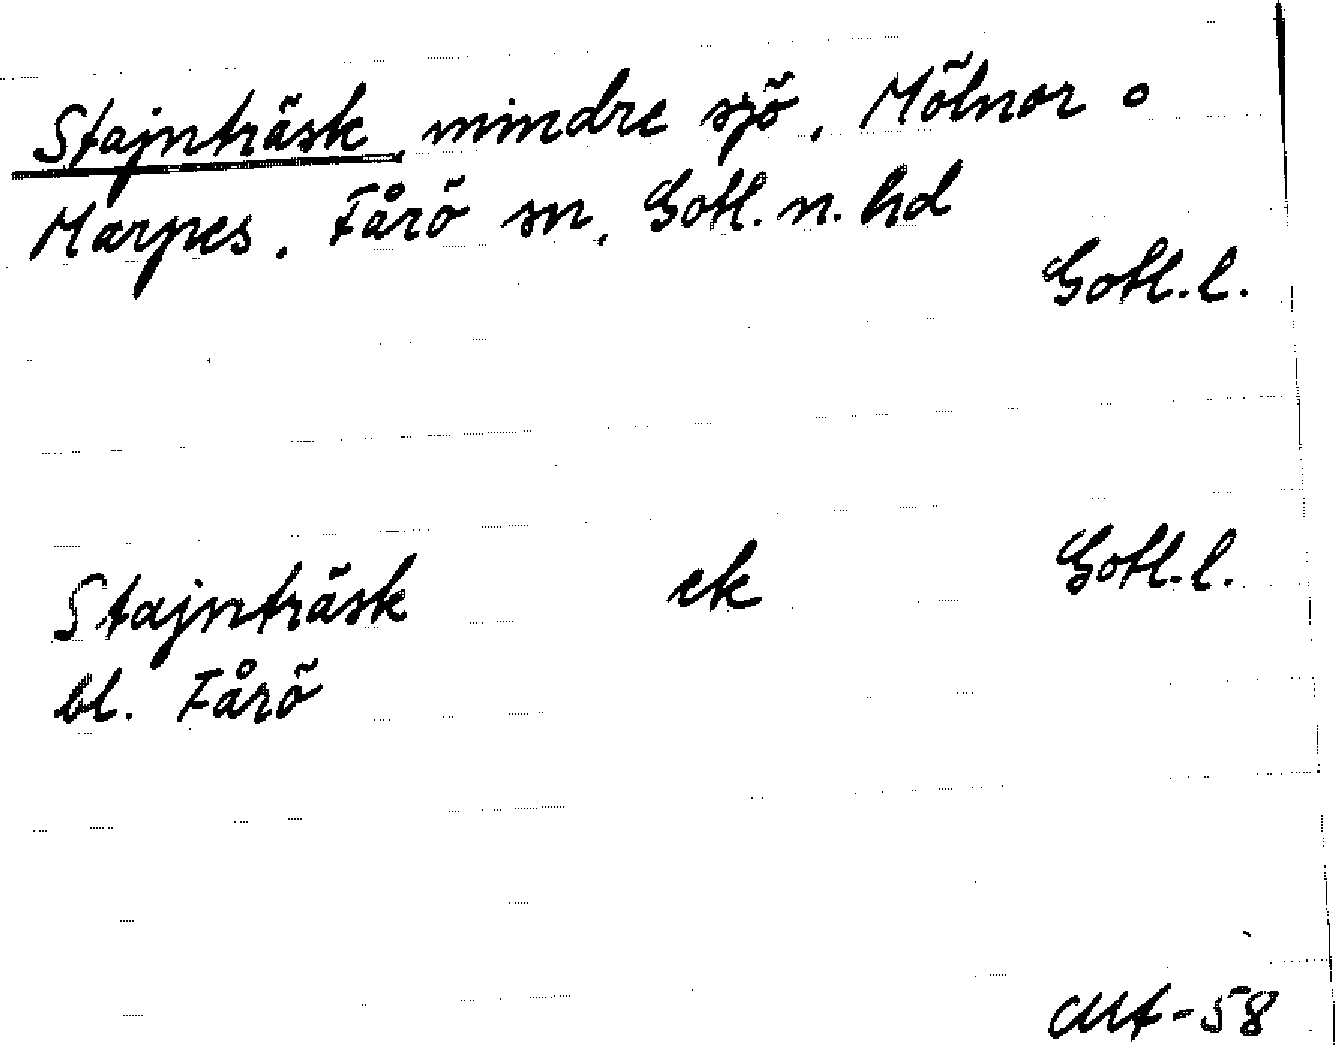 Stajnträsk, mindre sjö, Mölnor o
Marpes, Fårö sn, Gotl. n. hd
Gotl. l.
Stajnträsk ek Gotl. l.
bl. Fårö
-58